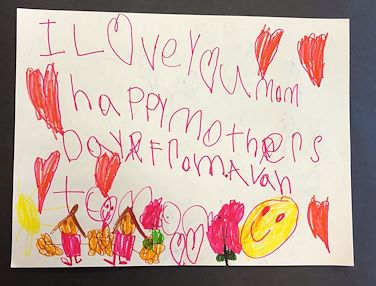 I LOveYOu mom
happymothers
Day FromAvan
to mom